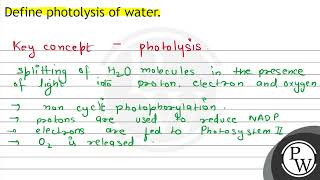 Define photolysis of water.
Key concept - photolysis
splitting of H2O molecules in the presence
of light into proton, electron and oxygen
→ non cyclic photophorylation.
→ protons are used to reduce NADP
→ electrons are fed to Photosystem II
→ O2 is released.
PW